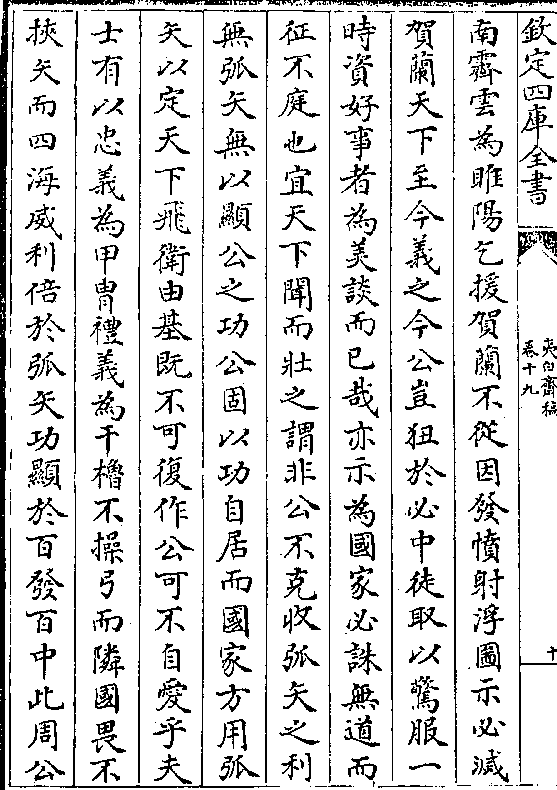 欽定四庫全書
夷白齋稿
卷十九
十
南霽雲為睢陽乞援賀蘭不從因發憤射浮圖示必滅
賀蘭天下至今義之今公豈狃於必中徒取以驚服一
時資好事者為美談而已哉亦示為國家必誅無道而
征不庭也宜天下聞而壯之謂非公不克收弧矢之利
無弧矢無以顯公之功公固以功自居而國家方用弧
矢以定天下飛衛由基既不可復作公可不自愛乎夫
士有以忠義為甲胄禮義為干櫓不操弓而隣國畏不
挾矢而四海威利倍於弧矢功顯於百發百中此周公